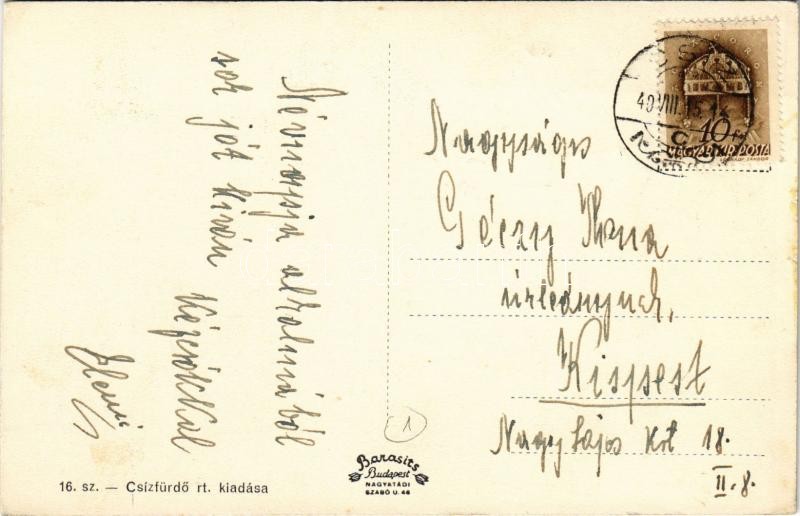 Névnapja alkalmából
sok jót kíván
Kézcsókkal
Nagyságos
Géczy Ilona
úrleánynak,
Kispest
Nagy Lajos krt 18.
II. 8.
1
40 VIII. 15
10
MAGYAR KIR. POSTA
Barasits
Budapest
NAGYATÁDI
SZABÓ U. 46
16. sz. — Csízfürdő rt. kiadása